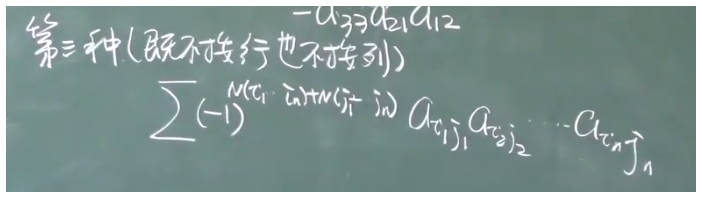 -a₃₃a₂₁a₁₂
第三种(既不按行也不按列)
∑(-1)^{N(i₁…iₙ)+N(j₁…jₙ)} a_{i₁j₁}a_{i₂j₂}……a_{iₙjₙ}